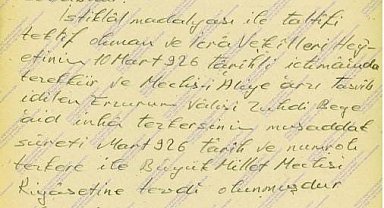 İstiklâl madalyası ile taltifi
teklif olunan ve İcra Vekilleri Hey-
etinin 10 Mart 926 tarihli ictimaında
tezekkür ve Meclisi Âliye arzı tasvib
idilen Erzurum Valisi Zühdi Beye
aid inha tezkersinin musaddak
sûreti Mart 926 tarih ve numrolu
tezkere ile Büyük Millet Meclisi
Riyâsetine tevdi olunmuşdur